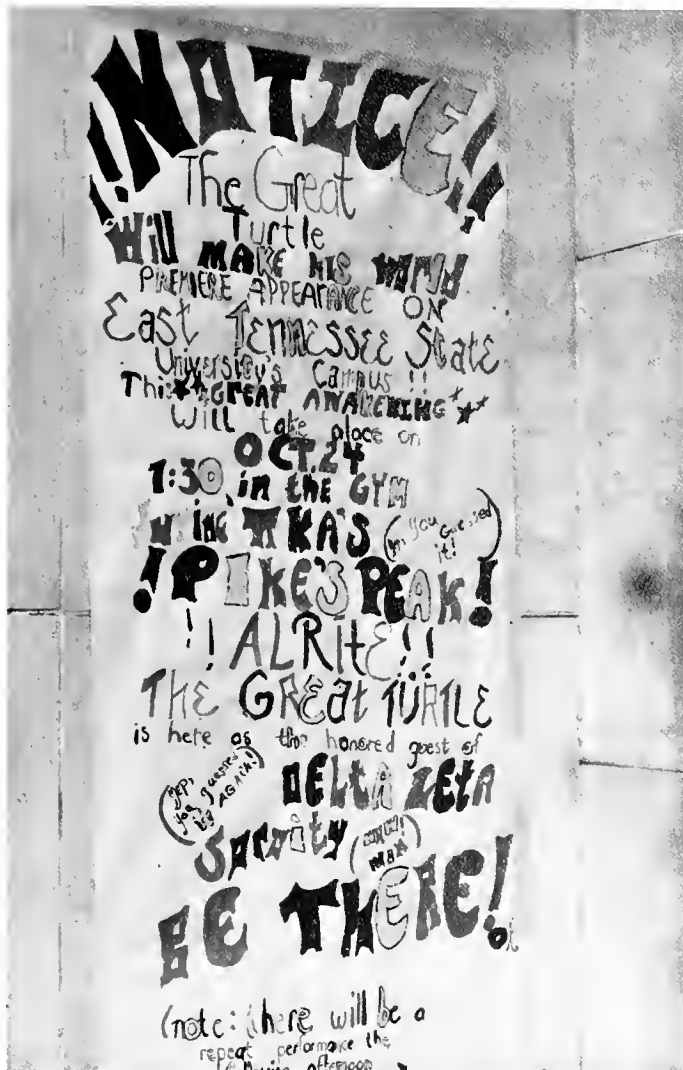 !!NOTICE!!
The Great
Turtle
Will MAKE HIS WORLD
PREMIERE APPEARANCE ON
East TENNESSEE State
University's Campus !!
This **GREAT AWAKENING**
WILL take place on
OCT. 24
1:30 in the GYM
πKA'S (you guessed it!)
!PIKE'S PEAK!
!! ALRITE!!
THE GREAT TURTLE
is here as the honored guest of
(yep, you guessed it AGAIN!) DELTA ZETA
Sorority
BE THERE!
(note: there will be a
repeat performance the
afternoon